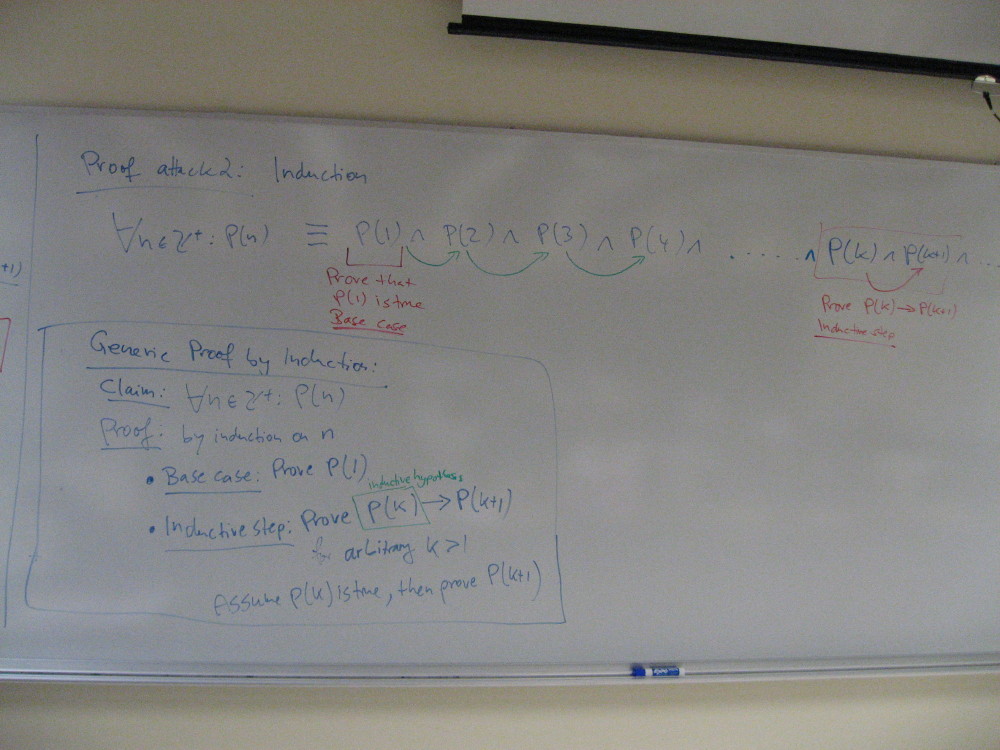 Proof attack 2: Induction
∀n∈Z⁺: P(n) ≡ P(1) ∧ P(2) ∧ P(3) ∧ P(4) ∧ ...... ∧ P(k) ∧ P(k+1) ∧ ...
+1)
Prove that
P(1) is true
Base case
Prove P(k) → P(k+1)
Inductive step
Generic Proof by Induction:
Claim: ∀n∈Z⁺: P(n)
Proof: by induction on n
• Base case: Prove P(1)
inductive hypothesis
• Inductive step: Prove P(k) → P(k+1)
for arbitrary k>1
Assume P(k) is true, then prove P(k+1)